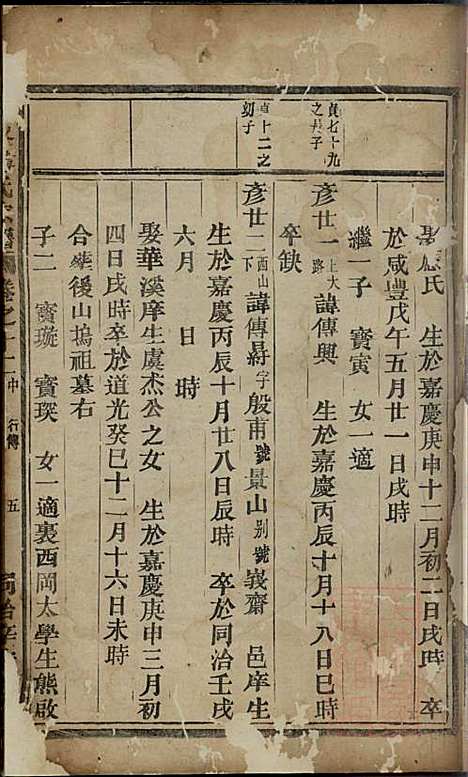 氏 生於嘉慶庚申十二月初二日戌時 卒
於咸豐戊午五月廿一日戌時
繼一子 寳寅 女一適
貞七十九
之 子
彥廿一 上大路 諱傳興 生於嘉慶丙辰十月十八日巳時
卒缺
貞十二之
幼子
彥廿二 西山下 諱傳 字殷甫號景山别號羲齋 邑庠生
生於嘉慶丙辰十月廿八日辰時 卒於同治壬戌
六月 日 時
娶華溪庠生虞杰公之女 生於嘉慶庚申三月初
四日戌時卒於道光癸巳十二月十六日未時
合塟後山塢祖墓右
子二 寳璇 寳瑛 女一適裏西岡太學生熊啟
氏 譜 卷之十二 中 行傳 五 同治